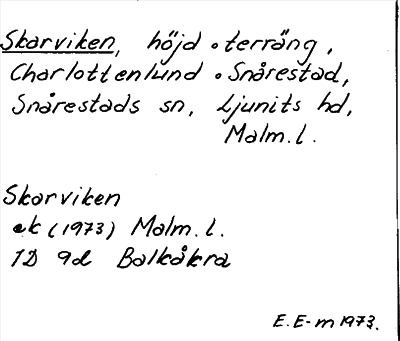 Skarviken, höjd o terräng,
Charlottenlund o Snårestad,
Snårestads sn, Ljunits hd,
Malm.l.
Skarviken
ek (1973) Malm.l.
1D 9d Balkåkra
E.E-m 1973.